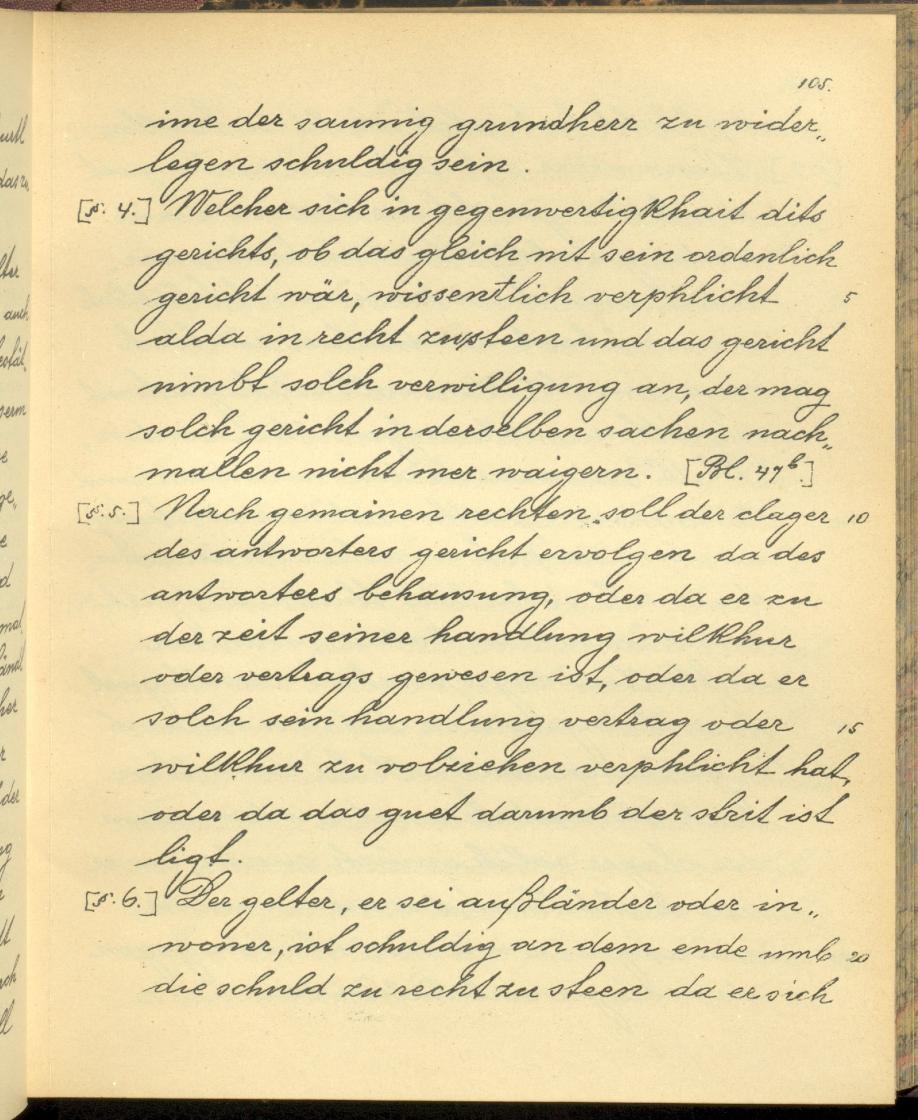 105.
ime der saumig grundherr zu wider„
legen schuldig sein.
[§. 4.] Welcher sich in gegenwertigkhait dits
gerichts, ob das gleich nit sein ordenlich
gericht wär, wissentlich verphlicht 5
alda in recht zu steen und das gericht
nimbt solch verwilligung an, der mag
solch gericht in derselben sachen nach„
mallen nicht mer waigern. [Bl. 47b.]
[§. 5.] Nach gemainen rechten soll der clager 10
des antworters gericht ervolgen da des
antworters behausung, oder da er zu
der zeit seiner handlung wilkhur
oder vertrags gewesen ist, oder da er
solch sein handlung vertrag oder 15
wilkhur zu volziehen verphlicht hat,
oder da das guet darumb der strit ist
ligt.
[§. 6.] Der gelter, er sei außländer oder in„
woner, ist schuldig an dem ende umb 20
die schuld zu recht zu steen da er sich